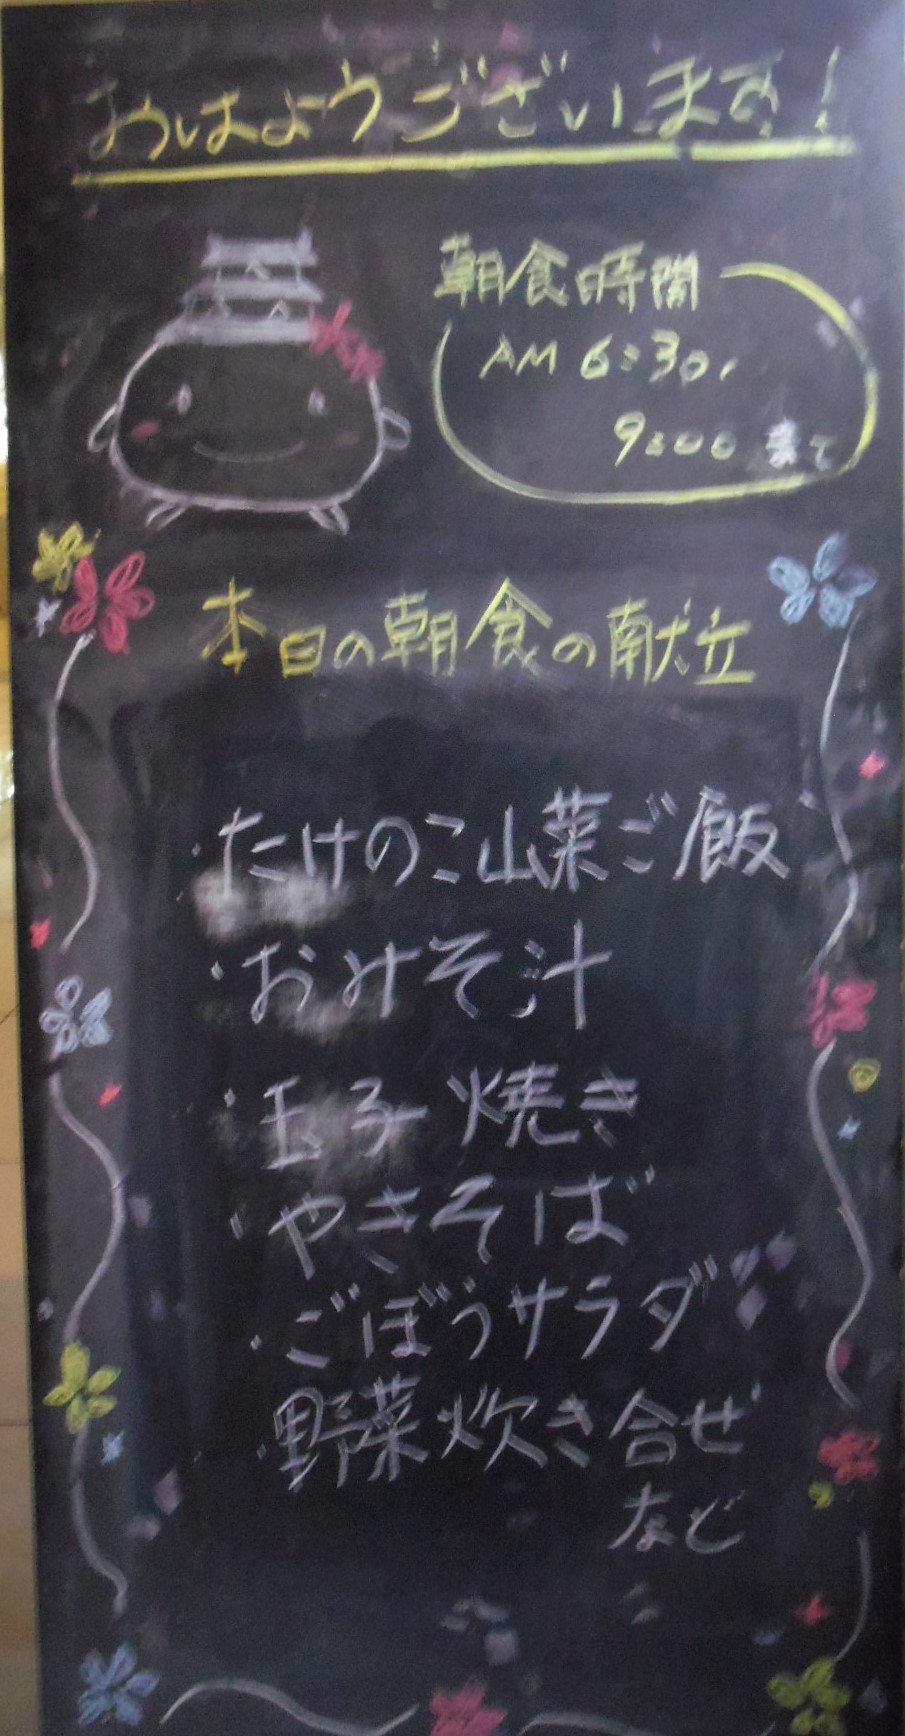 おはようございます!
朝食時間
AM 6:30~
9:00まで
本日の朝食の献立
・たけのこ山菜ご飯
・おみそ汁
・玉子焼き
・やきそば
・ごぼうサラダ
・野菜炊き合せ
など